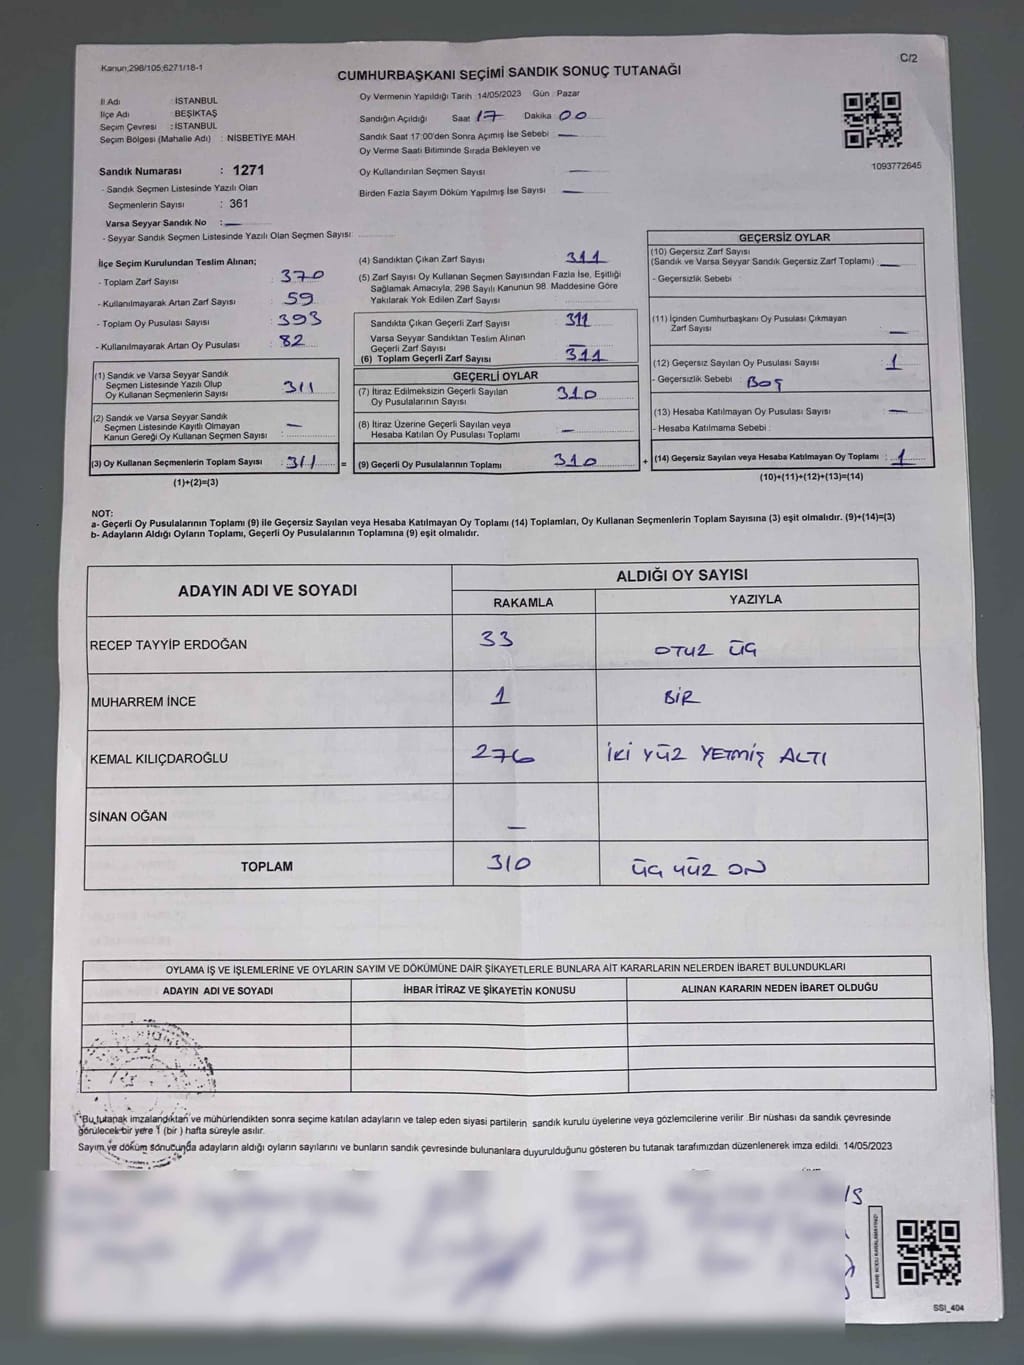 Kanun,298/105,6271/18-1
C/2
CUMHURBAŞKANI SEÇİMİ SANDIK SONUÇ TUTANAĞI
İl Adı : İSTANBUL
İlçe Adı : BEŞİKTAŞ
Seçim Çevresi : İSTANBUL
Seçim Bölgesi (Mahalle Adı) : NİSBETİYE MAH.
Sandık Numarası : 1271
- Sandık Seçmen Listesinde Yazılı Olan
Seçmenlerin Sayısı : 361
Varsa Seyyar Sandık No : —
- Seyyar Sandık Seçmen Listesinde Yazılı Olan Seçmen Sayısı:
Oy Vermenin Yapıldığı Tarih : 14/05/2023 Gün : Pazar
Sandığın Açıldığı Saat 17 Dakika 00
Sandık Saat 17:00'den Sonra Açımış İse Sebebi : —
Oy Verme Saati Bitiminde Sırada Bekleyen ve
Oy Kullandırılan Seçmen Sayısı : —
Birden Fazla Sayım Döküm Yapılmış İse Sayısı : —
1093772645
İlçe Seçim Kurulundan Teslim Alınan;
- Toplam Zarf Sayısı : 370
- Kullanılmayarak Artan Zarf Sayısı : 59
- Toplam Oy Pusulası Sayısı : 393
- Kullanılmayarak Artan Oy Pusulası : 82
(1) Sandık ve Varsa Seyyar Sandık
Seçmen Listesinde Yazılı Olup
Oy Kullanan Seçmenlerin Sayısı : 311
(2) Sandık ve Varsa Seyyar Sandık
Seçmen Listesinde Kayıtlı Olmayan
Kanun Gereği Oy Kullanan Seçmen Sayısı : —
(3) Oy Kullanan Seçmenlerin Toplam Sayısı : 311 =
(1)+(2)=(3)
(4) Sandıktan Çıkan Zarf Sayısı : 311
(5) Zarf Sayısı Oy Kullanan Seçmen Sayısından Fazla İse, Eşitliği
Sağlamak Amacıyla, 298 Sayılı Kanunun 98. Maddesine Göre
Yakılarak Yok Edilen Zarf Sayısı :
Sandıkta Çıkan Geçerli Zarf Sayısı : 311
Varsa Seyyar Sandıktan Teslim Alınan
Geçerli Zarf Sayısı : —
(6) Toplam Geçerli Zarf Sayısı : 311
GEÇERLİ OYLAR
(7) İtiraz Edilmeksizin Geçerli Sayılan
Oy Pusulalarının Sayısı : 310
(8) İtiraz Üzerine Geçerli Sayılan veya
Hesaba Katılan Oy Pusulası Toplamı : —
(9) Geçerli Oy Pusulalarının Toplamı : 310 +
GEÇERSİZ OYLAR
(10) Geçersiz Zarf Sayısı
(Sandık ve Varsa Seyyar Sandık Geçersiz Zarf Toplamı) : —
- Geçersizlik Sebebi :
(11) İçinden Cumhurbaşkanı Oy Pusulası Çıkmayan
Zarf Sayısı : —
(12) Geçersiz Sayılan Oy Pusulası Sayısı : 1
- Geçersizlik Sebebi : BOŞ
(13) Hesaba Katılmayan Oy Pusulası Sayısı : —
- Hesaba Katılmama Sebebi :
(14) Geçersiz Sayılan veya Hesaba Katılmayan Oy Toplamı : 1
(10)+(11)+(12)+(13)=(14)
NOT:
a- Geçerli Oy Pusulalarının Toplamı (9) ile Geçersiz Sayılan veya Hesaba Katılmayan Oy Toplamı (14) Toplamları, Oy Kullanan Seçmenlerin Toplam Sayısına (3) eşit olmalıdır. (9)+(14)=(3)
b- Adayların Aldığı Oyların Toplamı, Geçerli Oy Pusulalarının Toplamına (9) eşit olmalıdır.
ADAYIN ADI VE SOYADI
ALDIĞI OY SAYISI
RAKAMLA YAZIYLA
RECEP TAYYİP ERDOĞAN 33 OTUZ ÜÇ
MUHARREM İNCE 1 BİR
KEMAL KILIÇDAROĞLU 276 İKİ YÜZ YETMİŞ ALTI
SİNAN OĞAN —
TOPLAM 310 ÜÇ YÜZ ON
OYLAMA İŞ VE İŞLEMLERİNE VE OYLARIN SAYIM VE DÖKÜMÜNE DAİR ŞİKAYETLERLE BUNLARA AİT KARARLARIN NELERDEN İBARET BULUNDUKLARI
ADAYIN ADI VE SOYADI İHBAR İTİRAZ VE ŞİKAYETİN KONUSU ALINAN KARARIN NEDEN İBARET OLDUĞU
*Bu tutanak imzalandıktan ve mühürlendikten sonra seçime katılan adayların ve talep eden siyasi partilerin sandık kurulu üyelerine veya gözlemcilerine verilir .Bir nüshası da sandık çevresinde
görülecek bir yere 1 (bir ) hafta süreyle asılır.
Sayım ve döküm sonucunda adayların aldığı oyların sayılarını ve bunların sandık çevresinde bulunanlara duyurulduğunu gösteren bu tutanak tarafımızdan düzenlenerek imza edildi. 14/05/2023
SSI_404